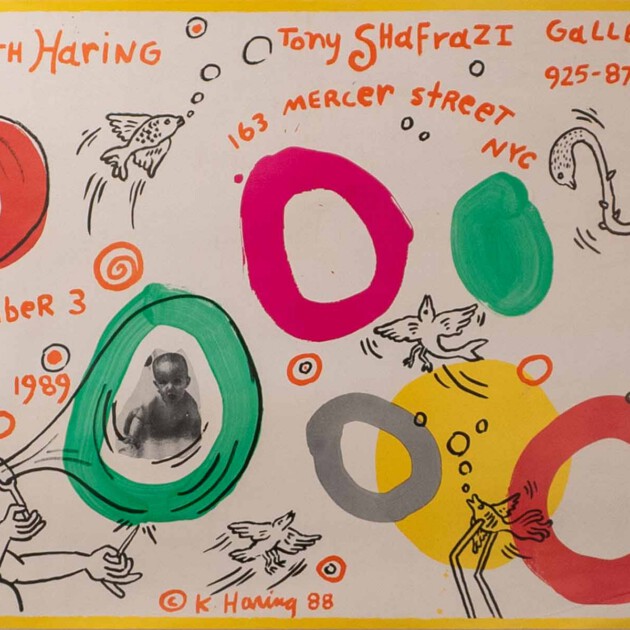 TH HARING
Tony SHAFRAZI GALLE
925-87
163 MERCER STREET
NYC
BER 3
1989
© K. Haring 88